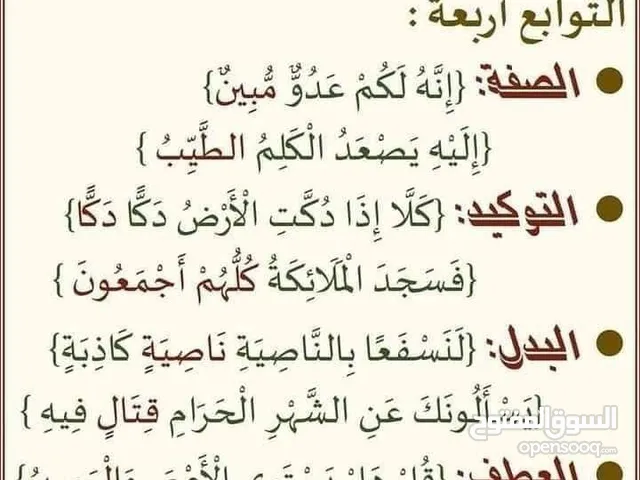 التوابع أربعة :
الصفة: {إِنَّهُ لَكُمْ عَدُوٌّ مُّبِينٌ}
{إِلَيْهِ يَصْعَدُ الْكَلِمُ الطَّيِّبُ }
التوكيد: {كَلَّا إِذَا دُكَّتِ الْأَرْضُ دَكًّا دَكًّا}
{فَسَجَدَ الْمَلَائِكَةُ كُلُّهُمْ أَجْمَعُونَ }
البدل: {لَنَسْفَعًا بِالنَّاصِيَةِ نَاصِيَةٍ كَاذِبَةٍ}
{يَسْأَلُونَكَ عَنِ الشَّهْرِ الْحَرَامِ قِتَالٍ فِيهِ }
السوق المفتوح
opensooq.com
العطف: {قُلْ هَلْ يَسْتَوِي الْأَعْمَى وَالْبَصِيرُ}